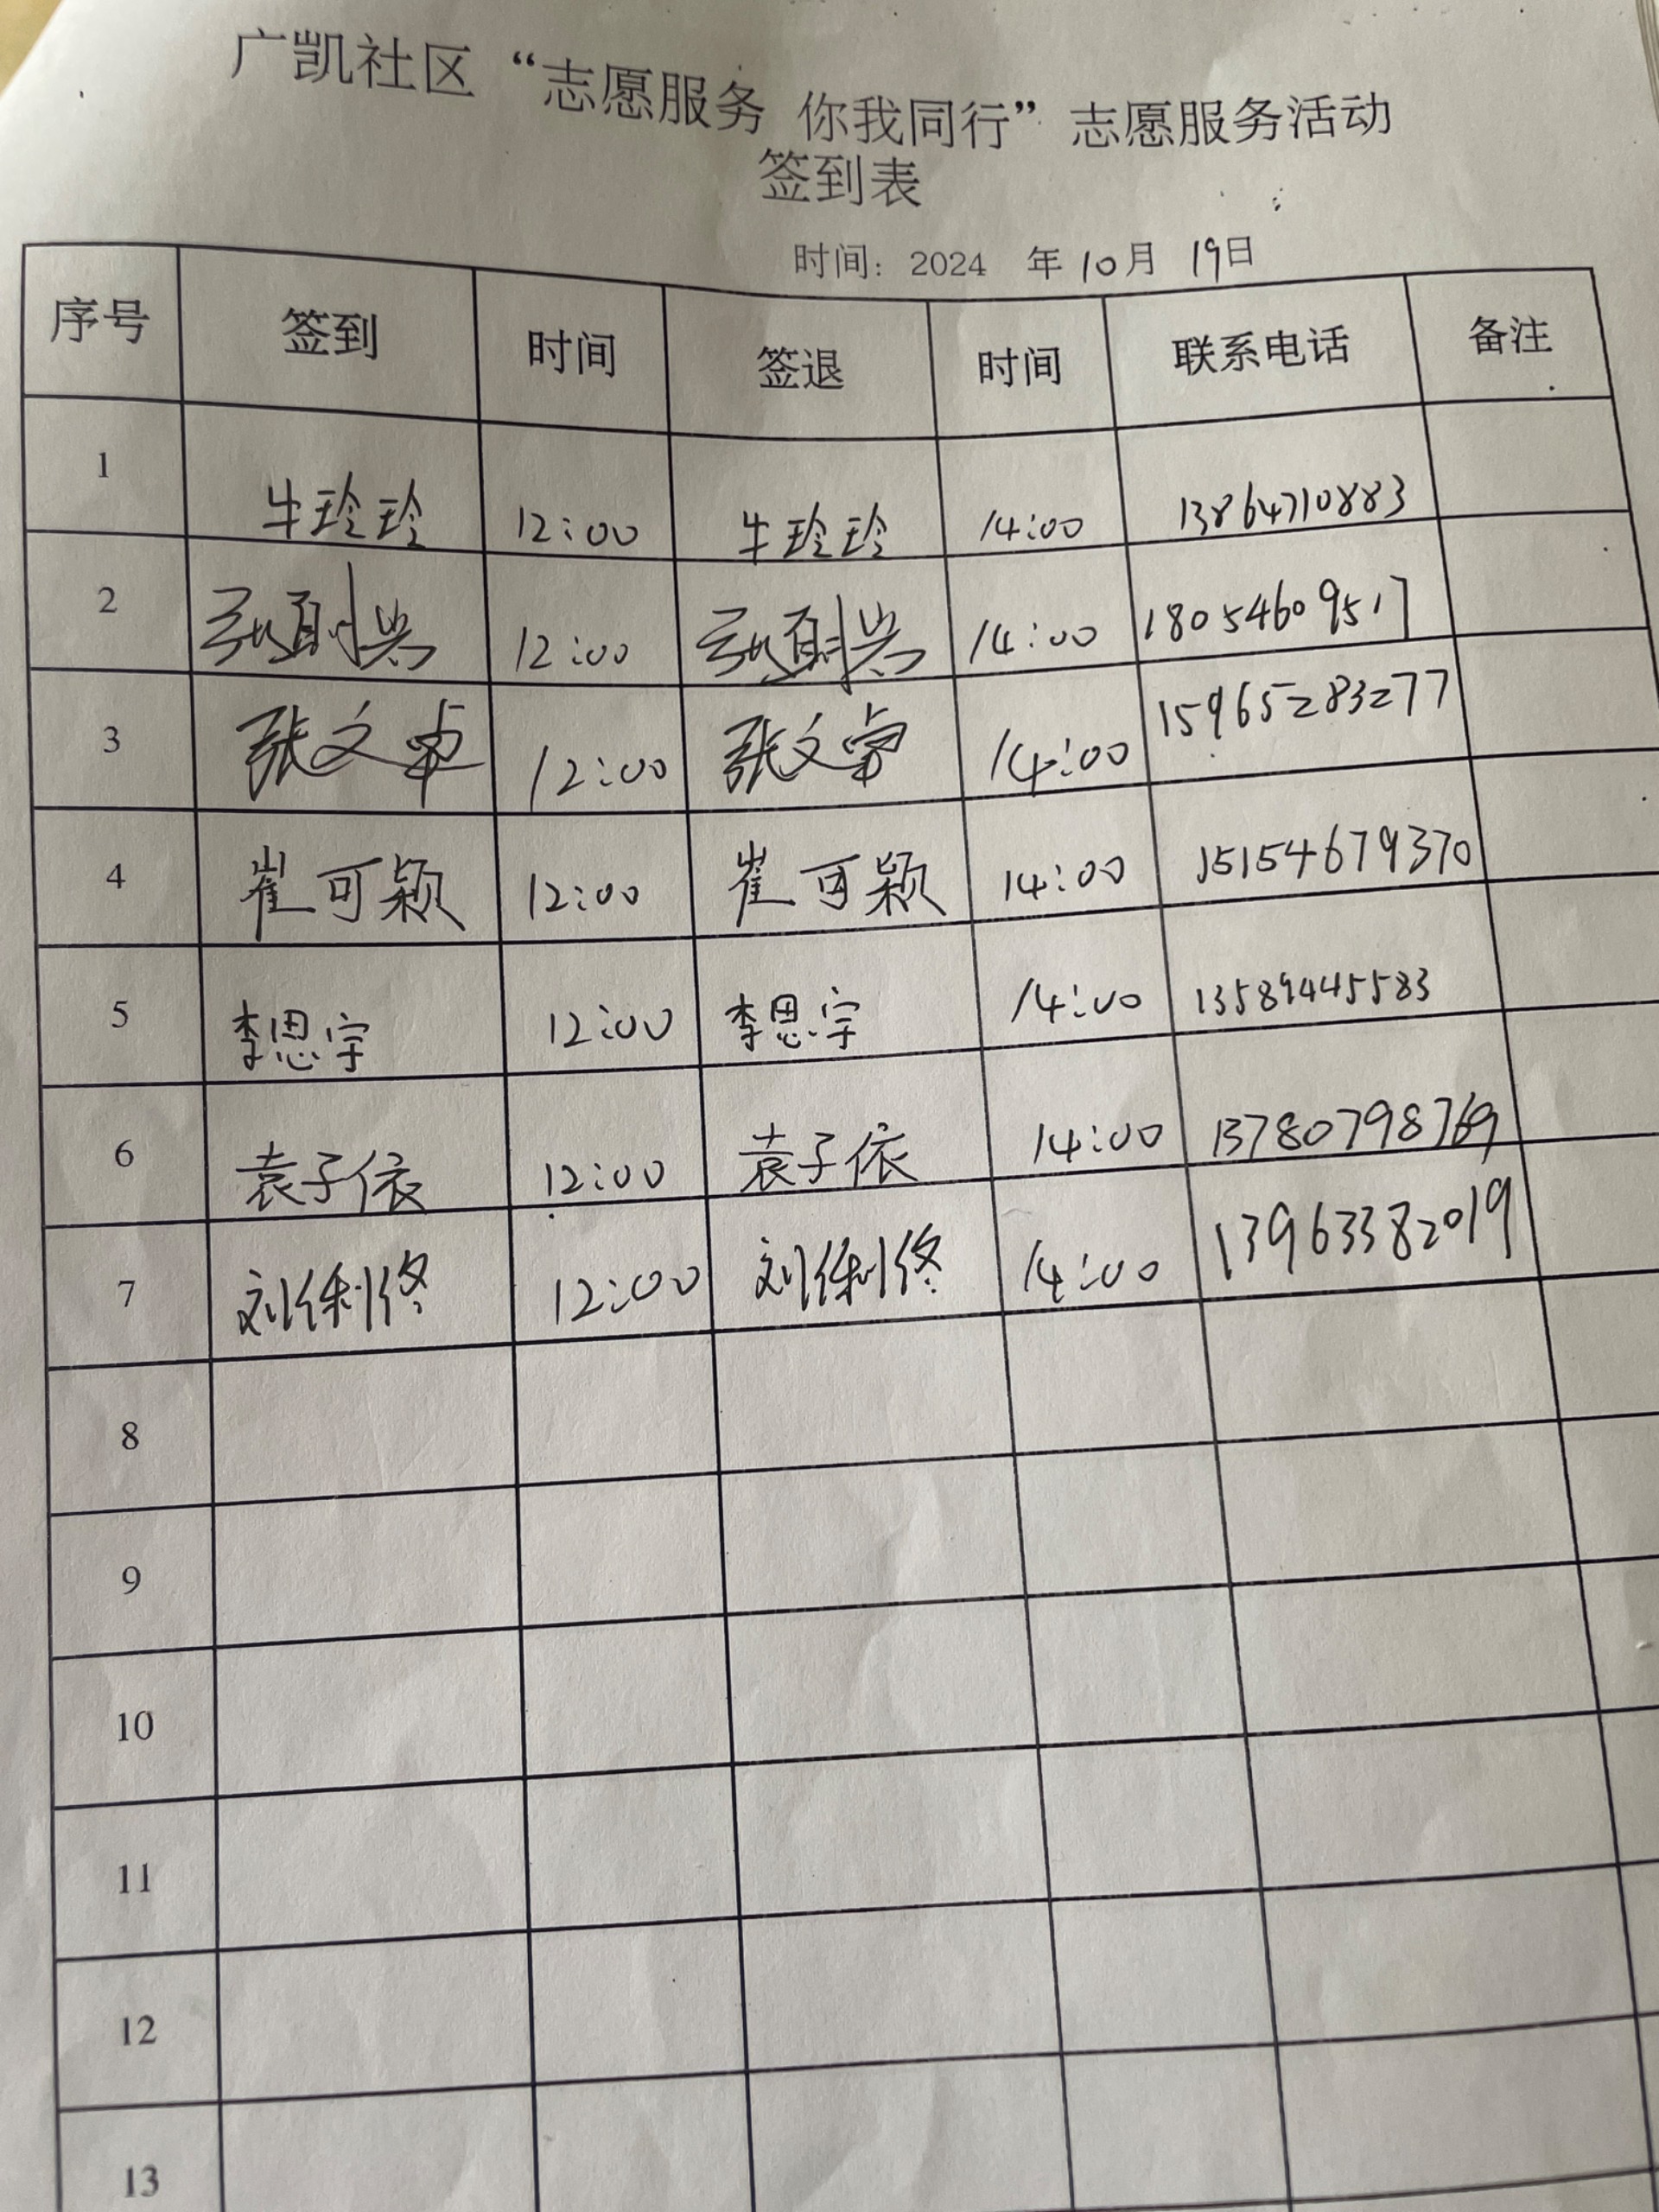 广凯社区“志愿服务 你我同行”志愿服务活动
签到表
时间：2024 年10月 19日
序号 签到 时间 签退 时间 联系电话 备注
1 牛玲玲 12:00 牛玲玲 14:00 13864710883
2 12:00 14:00 18054609517
3 张文卓 12:00 张文 14:00 15965283277
4 崔可颖 12:00 崔可颖 14:00 15154679370
5 李恩宇 12:00 李恩宇 14:00 13589445583
6 袁子依 12:00 袁子依 14:00 13780798769
7 刘 12:00 刘 14:00 13963382019
8
9
10
11
12
13